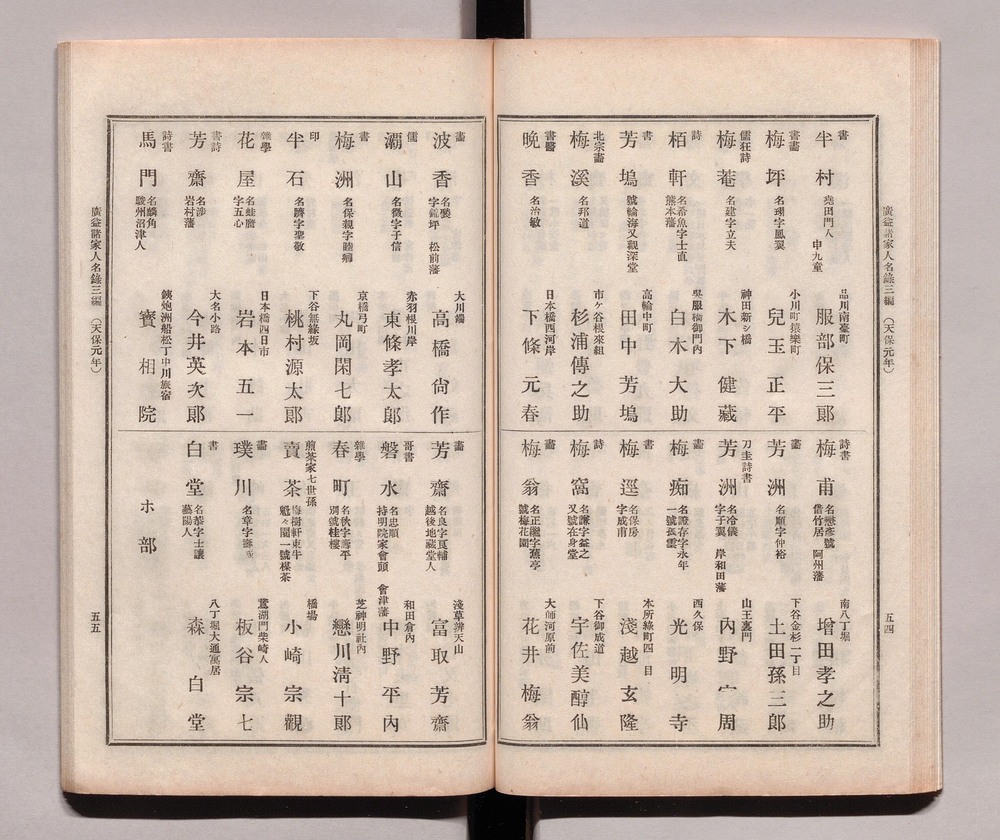 廣益諸家人名錄三編 (天保元年)
五四
書 半村 堯田門人 申九童 品川南臺町 服部保三郎
書畫 梅坪 名瑚字鳳翼 小川町猿樂町 兒玉正平
儒狂詩 梅菴 名建字立夫 神田新シ橋 木下健藏
詩 栢軒 名希魚字士直 熊本藩 吳服橋御門內 白木大助
書 芳塢 號輪海又觀深堂 高輪中町 田中芳塢
北宗畫 梅溪 名邦道 市ケ谷根來組 杉浦傳之助
書醫 晚香 名治敏 日本橋西河岸 下條元春
詩書 梅甫 名懋彥號借竹居 阿州藩 南八丁堀 增田孝之助
畫 芳洲 名順字仲裕 下谷金杉二丁目 土田孫三郎
刀圭詩書 芳洲 名冷儀字子翼 岸和田藩 山王裏門 內野周
畫 梅痴 名證存字永年 一號 西久保 光明寺
書 梅逕 名保房字成甫 本所綠町四目 淺越玄隆
詩 梅窩 名謙字益之 又號在身堂 下谷御成道 宇佐美醇仙
畫 梅翁 名正字蕉亭 號梅花園 大師河原前 花井梅翁
畫 波香 名襲字 坪 松前藩 大川端 高橋尙作
儒 灞山 名徵字子信 赤羽根川岸 東條孝太郎
書 梅洲 名保親字睦 京橋弓町 丸岡閑七郎
印 半石 名躋字聖敬 下谷無緣坂 桃村源太郎
雜學 花屋 名蛙麿字五心 日本橋四日市 岩本五一
書詩 芳齋 名渉 岩村藩 大名小路 今井英次郎
詩書 馬門 名麟角 駿州沼津人 鐵炮洲船松丁中川旅宿 寳相院
畫 芳齋 名良字莨輔 越後地藏堂人 淺草辨天山 富取芳齋
哥書 磐水 名忠順 持明院家會頭 會津藩 和田倉內 中野平內
雜學 春町 名狄字壽平 別號桂樓 芝神明社內 戀川淸十郎
煎茶家七世孫 賣茶 梅樹軒東牛 魁々園一號楳茶 橋場 小崎宗觀
畫 璞川 名章字壽 鷲湖門柴崎人 板谷宗七
書 白堂 名恭字士讓 藝陽人 八丁堀大通寓居 森白堂
ホ部
廣益諸家人名錄三編 (天保元年)
五五